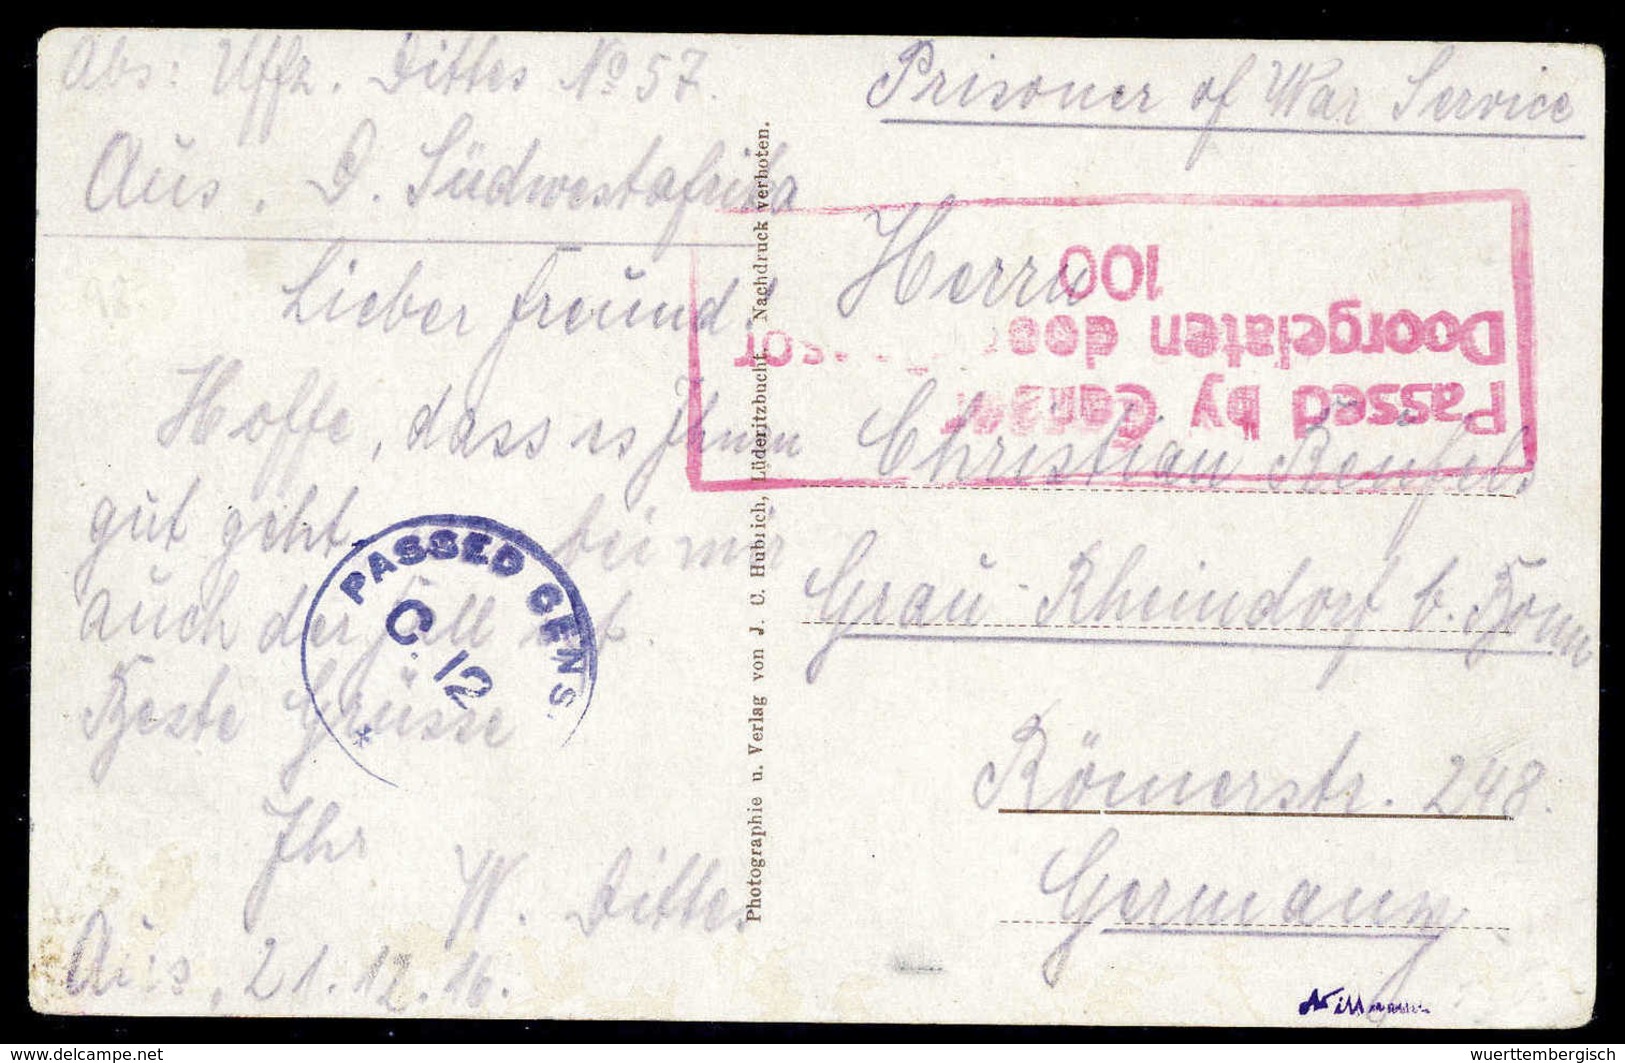 Abs: Uffz. Dittes No 57.
Aus. D. Südwestafrika
Lieber Freund!
Hoffe, dass es Ihnen
gut geht, bei mir
auch der Fall ist.
Beste Grüsse
Ihr
W. Dittes
Aus, 21.12.16.
PASSED CENS.
C. 12
Photographie u. Verlag von J. C. Hubrich, Lüderitzbucht. Nachdruck verboten.
Prisoner of War Service
Passed by Censor
Doorgelaten door Censor
100
Herrn
Christian
Grau-Rheindorf b. Bonn
Römerstr. 248.
Germany
www.delcampe.net
wuerttembergisch